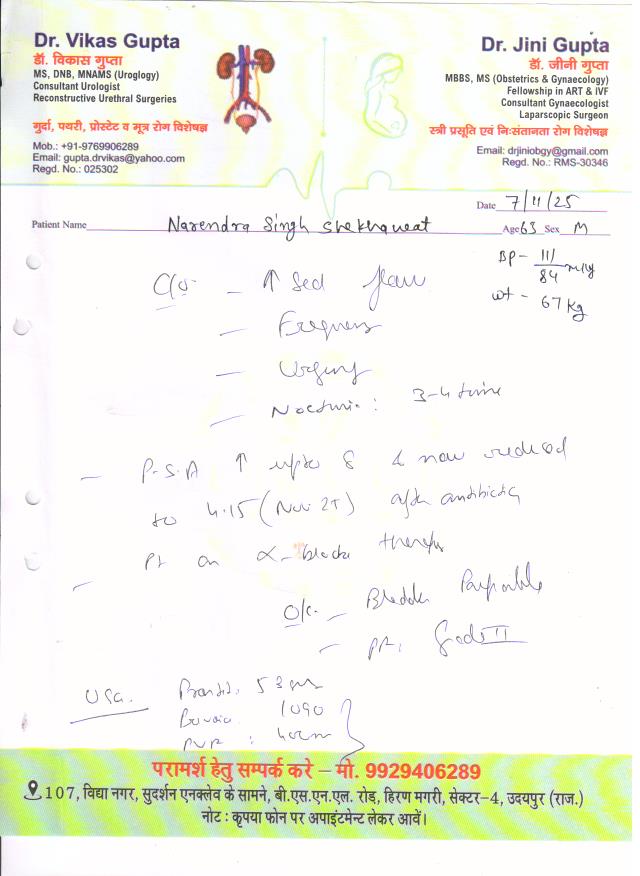 Dr. Vikas Gupta
डॉ. विकास गुप्ता
MS, DNB, MNAMS (Uroglogy)
Consultant Urologist
Reconstructive Urethral Surgeries
गुर्दा, पथरी, प्रोस्टेट व मूत्र रोग विशेषज्ञ
Mob.: +91-9769906289
Email: gupta.drvikas@yahoo.com
Regd. No.: 025302
Dr. Jini Gupta
डॉ. जीनी गुप्ता
MBBS, MS (Obstetrics & Gynaecology)
Fellowship in ART & IVF
Consultant Gynaecologist
Laparscopic Surgeon
स्त्री प्रसूति एवं निःसंतानता रोग विशेषज्ञ
Email: drjiniobgy@gmail.com
Regd. No.: RMS-30346
Date 7/11/25
Patient Name Narendra Singh Shekhawat Age 63 Sex M
BP - 111/84
wt - 67 kg
C/o - ↑
- Frequency
- Urgency
- Nocturia: 3-4 time
- P.S.A ↑ upto 8 & now reduced
to 4.15 (Nov 25) after antibiotic
- Pt on α-blocker therapy
O/E - Bladder Palpable
- Grade II
USG. 53 gm
PVR : 40
परामर्श हेतु सम्पर्क करे – मो. 9929406289
107, विद्या नगर, सुदर्शन एनक्लेव के सामने, बी.एस.एन.एल. रोड़, हिरण मगरी, सेक्टर-4, उदयपुर (राज.)
नोट : कृपया फोन पर अपाइंटमेन्ट लेकर आवें।